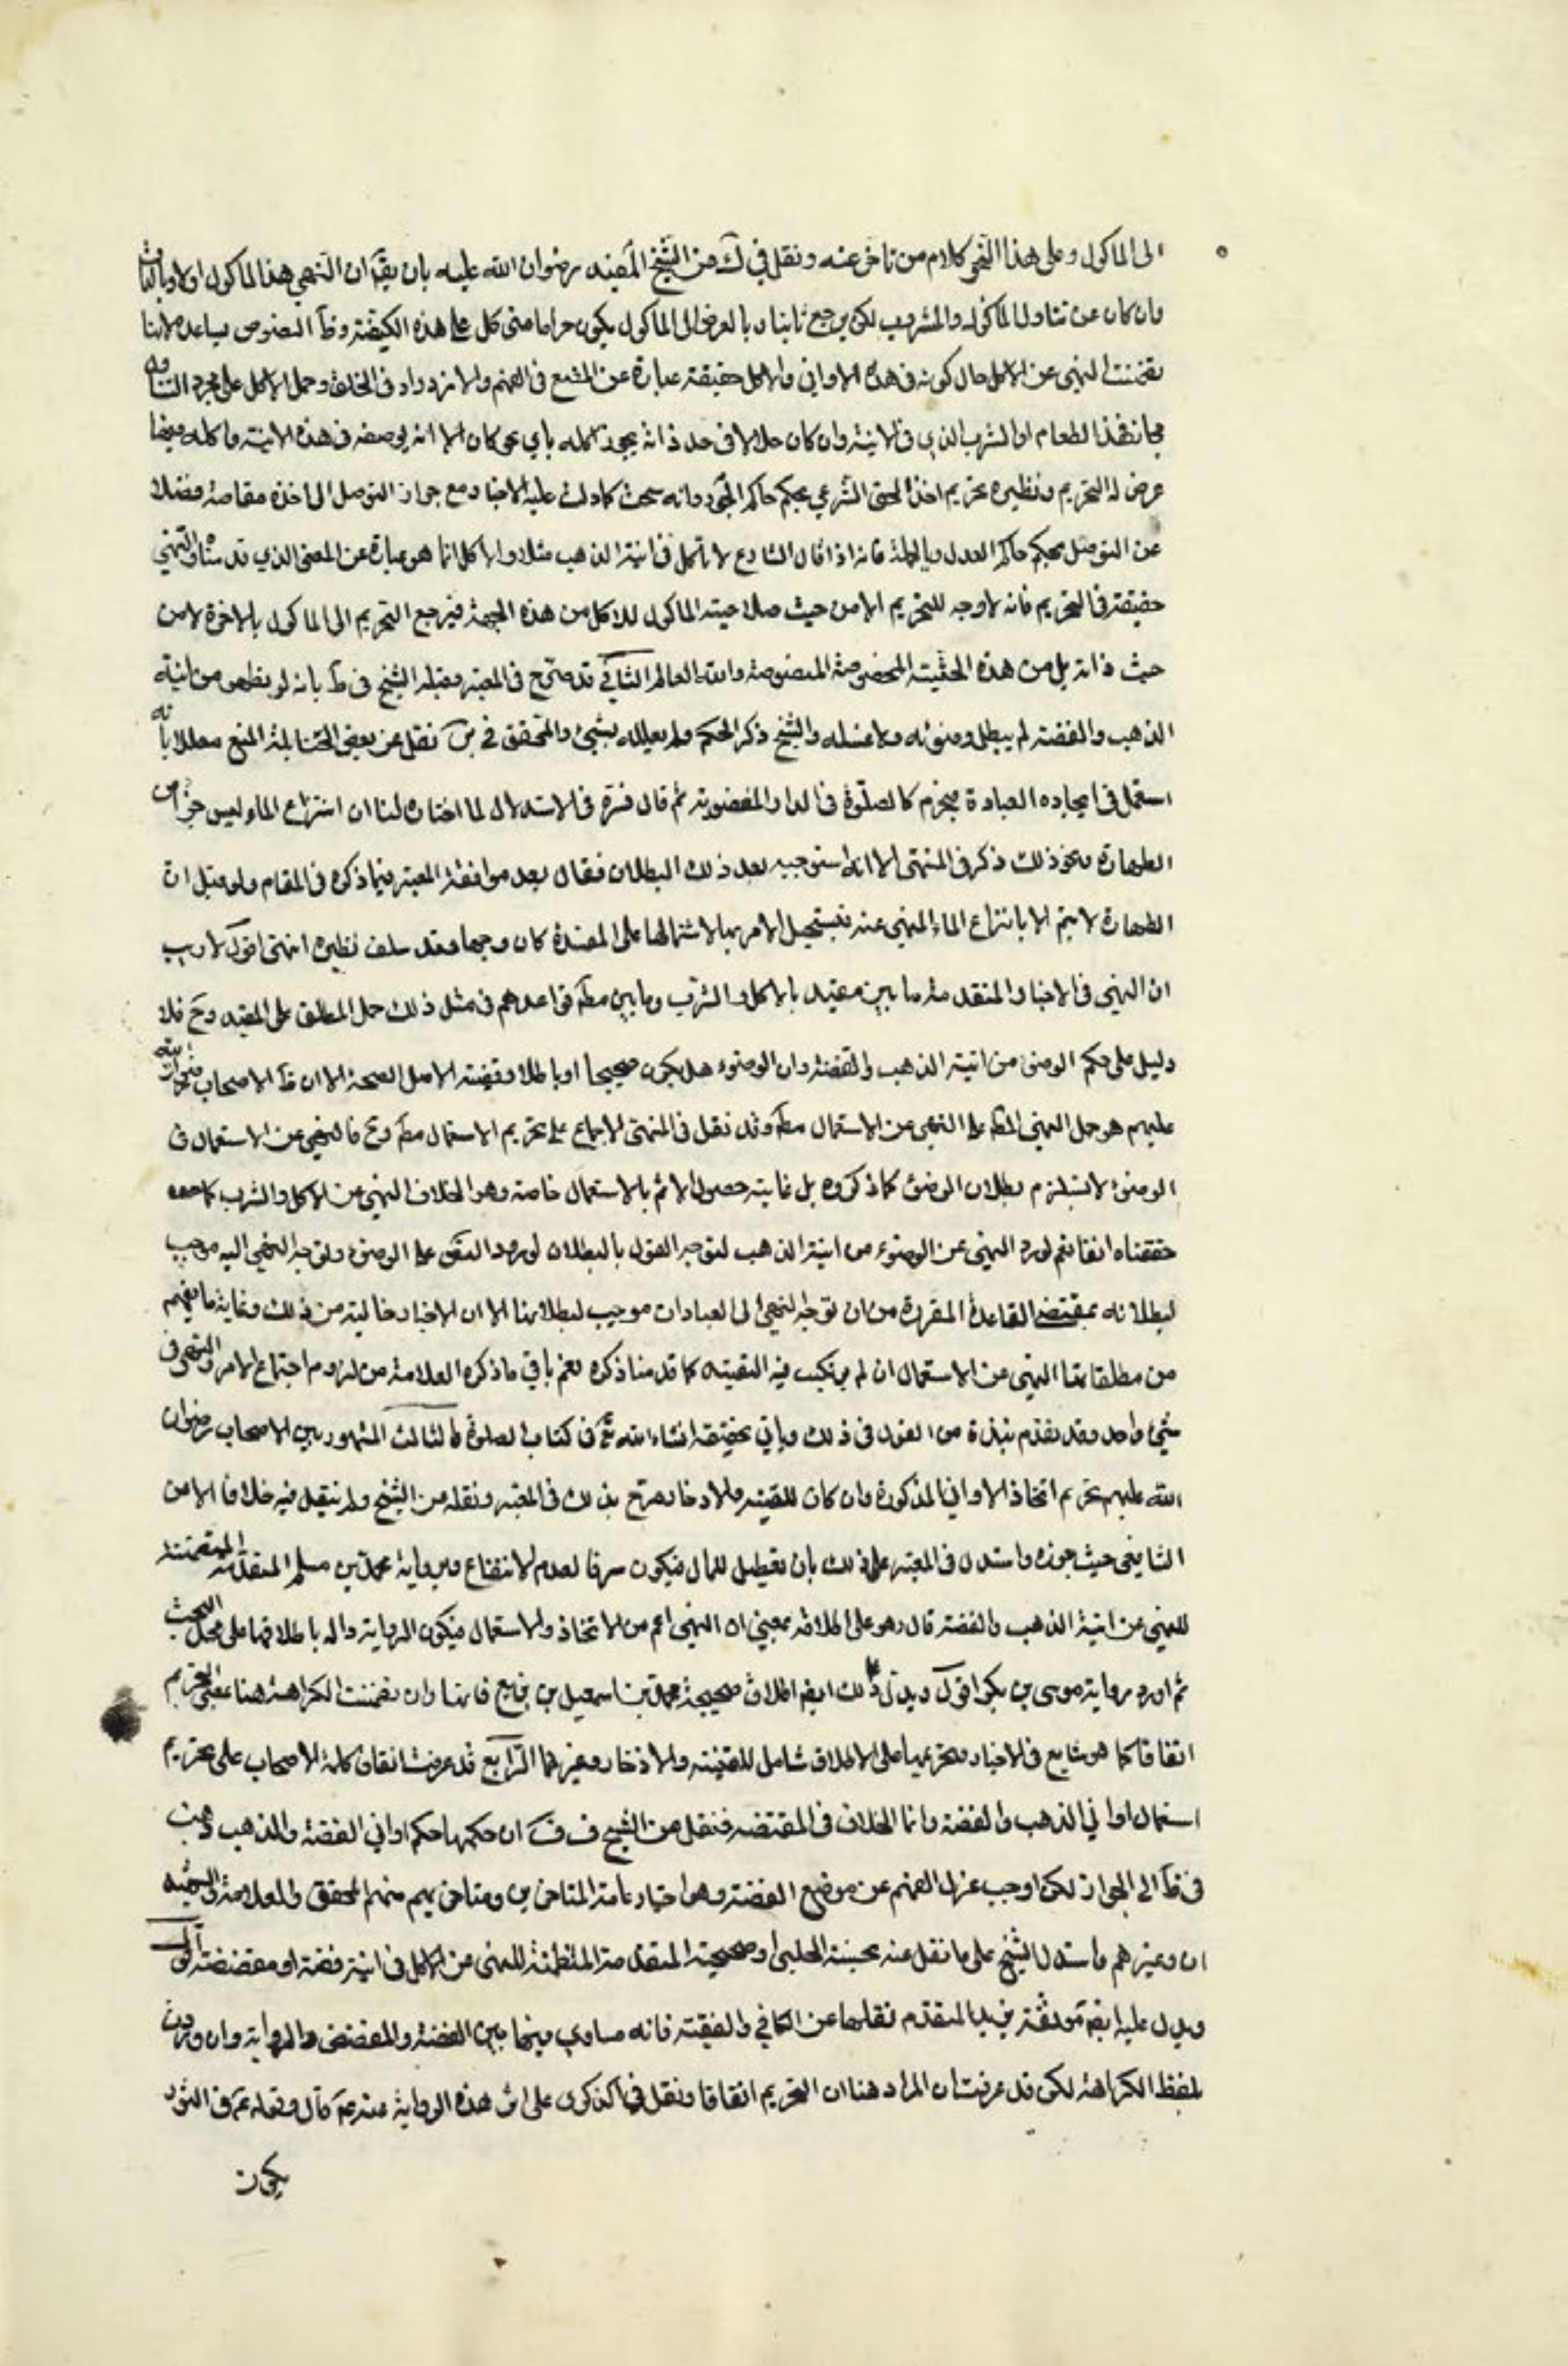 الى الماكول وعلى هذا النحو كلام من تاخر عنه ونقل في ك عن الشيخ المفيد رضوان الله عليه بان يقال ان النهي هذا الماكول اولا وبالذات
وان كان عن تناول الماكول والمشروب لكن يرجع ثانيا وبالعرض الى الماكول يكون حراما متى كل على هذه الكيفية وظ النصوص يساعده لانها
تضمنت النهي عن الاكل حال كونه في هذه الاواني والاكل حقيقة عبارة عن المضغ في الفم والازدراد في الحلق وحمل الاكل على مجرد التناول
مجاز فهذا الطعام او الشرب الذي في الانية وان كان حلالا في حد ذاته يجوز اكله باي نحو كان الا انه يوضعه في هذه الانية واكله فيها
عرض له التحريم ونظيره تحريم اخذ الحق الشرعي بحكم حاكم الجور وانه سحت كما دلت عليه الاخبار مع جواز التوصل الى اخذه مقاصة وفضلا
عن التوصل بحكم حاكم العدل وبالجملة فانه اذا قال الشارع لا تاكل في انية الذهب مثلا والاكل انما هو عبارة عن المعنى الذي قدمناه والنهي
حقيقة في التحريم فانه لا وجه للتحريم الا من حيث صلاحية الماكول للاكل من هذه الجهة فيرجع التحريم الى الماكول بالاخرة لا من
حيث ذاته بل من هذه الحيثية المخصوصة المنصوصة والله العالم الثاني قد صرح في المعتبر وقبله الشيخ في ط بانه لو تطهر من انية
الذهب والفضة لم يبطل وضوئه ولا غسله والشيخ ذكر الحكم ولم يعلله بشيئ والمحقق في بر نقل عن بعض الحنابلة المنع معللا بانه
استعمال في ايجاده العبادة فيحرم كالصلوة في الدار المغصوبة ثم قال في الاستدلال لما اختاره لنا ان انتزاع الماء ليس جزءا من
الطهارة ونحو ذلك ذكر في المنتهى الا انه استوجبه بعد ذلك البطلان فقال بعد موافقة المعتبر فيما ذكره في المقام ولو قيل ان
الطهارة لا يتم الا بانتزاع الماء المنهي عنه فيستحيل الامر بها لاشتمالها على المفسدة كان وجها وقد سلف نظيره انتهى اقول لا ريب
ان النهي في الاخبار المتقدمة ما بين مقيد بالاكل والشرب وما بين مطلق قواعدهم في مثل ذلك حمل المطلق على المقيد وح فلا
دليل على حكم الوضوء من انية الذهب والفضة وان الوضوء هل يكون صحيحا او باطلا وقضية الاصل الصحة الا ان ظ الاصحاب رضوان الله
عليهم هو حمل النهي المطلق على النهي عن الاستعمال مطلقا وقد نقل في المنتهى الاجماع على تحريم الاستعمال مطلقا وح فالنهي عن الاستعمال في
الوضوء لا يستلزم بطلان الوضوء كما ذكروه بل غايته حصول الاثم بالاستعمال خاصة وهو الخلاف النهي عن الاكل والشرب كما
حققناه انفا نعم لو ورد النهي عن الوضوء من انية الذهب لتوجه القول بالبطلان لورود النهي على الوضوء وتوجه النهي اليه موجب
لبطلانه بمقتضى القاعدة المقررة من ان توجه النهي الى العبادات موجب لبطلانها الا ان الاخبار خالية من ذلك وغاية ما يفهم
من مطلقاتها النهي عن الاستعمال ان لم يرتكب فيه التقييد كما قدمنا ذكره نعم باقي ما ذكره العلامة من لزوم اجتماع الامر والنهي في
شيئ واحد وقد تقدم نبذة من القول في ذلك وياتي تحقيقه انشاء الله تع في كتاب الصلوة الثالث المشهور بين الاصحاب رضوان
الله عليهم تحريم اتخاذ الاواني المذكورة وان كان للقنية والادخار صرح بذلك في المعتبر ونقله من الشيخ ولم ينقل فيه خلافا الا من
الشافعي حيث جوزه واستدل في المعتبر على ذلك بان تعطيل للمال فيكون سرفا لعدم الانتفاع وبرواية محمد بن مسلم المتقدمة المتضمنة
للنهي عن انية الذهب والفضة قال وهو على اطلاقه بمعنى ان النهي اعم من الاتخاذ والاستعمال فيكون الرواية دالة باطلاقها على محل البحث
ثم اورد رواية موسى بن بكر اقول ويدل على ذلك ايضا اطلاق صحيحة محمد بن اسمعيل بن بزيع فانها وان تضمنت الكراهة هنا بمعنى التحريم
اتفاقا كما هو شايع في الاخبار وتحريمها على الاطلاق شامل للقنية والاذخار وغيرهما الرابع قد عرفت اتفاق كلمة الاصحاب على تحريم
استعمال اواني الذهب والفضة وانما الخلاف في المفضضة فنقل عن الشيخ في ف ان حكمها حكم اواني الفضة والذهب وذهب
في ط الى الجواز لكن اوجب عزل الفم عن موضع الفضة وهو اختيار عامة المتاخرين ومتاخريهم منهم المحقق والعلامة والشهيد
ان وغيرهم واستدل الشيخ على ما نقل عنه بحسنة الحلبي او صحيحته المتقدمة المتضمنة للنهي عن الاكل في انية فضة او مفضضة اقول
ويدل عليه ايضا موثقة بريد المتقدم نقلها عن الكافي والفقيه فانه مساوي فيها بين الفضة والمفضض والرواية وان وردت
بلفظ الكراهة لكن قد عرفت ان المراد هنا ان التحريم اتفاقا ونقل في الذكرى على اثر هذه الرواية عنه ع قال وقوله ع في التور
يكون